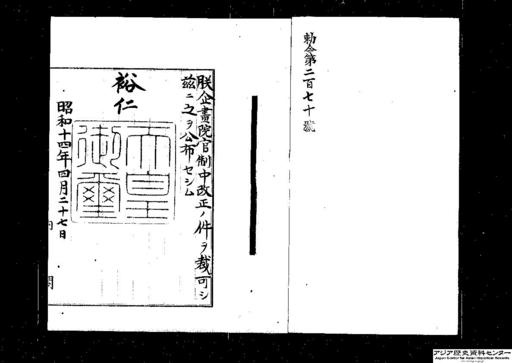 勅令第二百七十號
朕企畫院官制中改正ノ件ヲ裁可シ
茲ニ之ヲ公布セシム
裕仁
天皇
御璽
昭和十四年四月二十七日
内閣
アジア歴史資料センター
Japan Center for Asian Historical Records